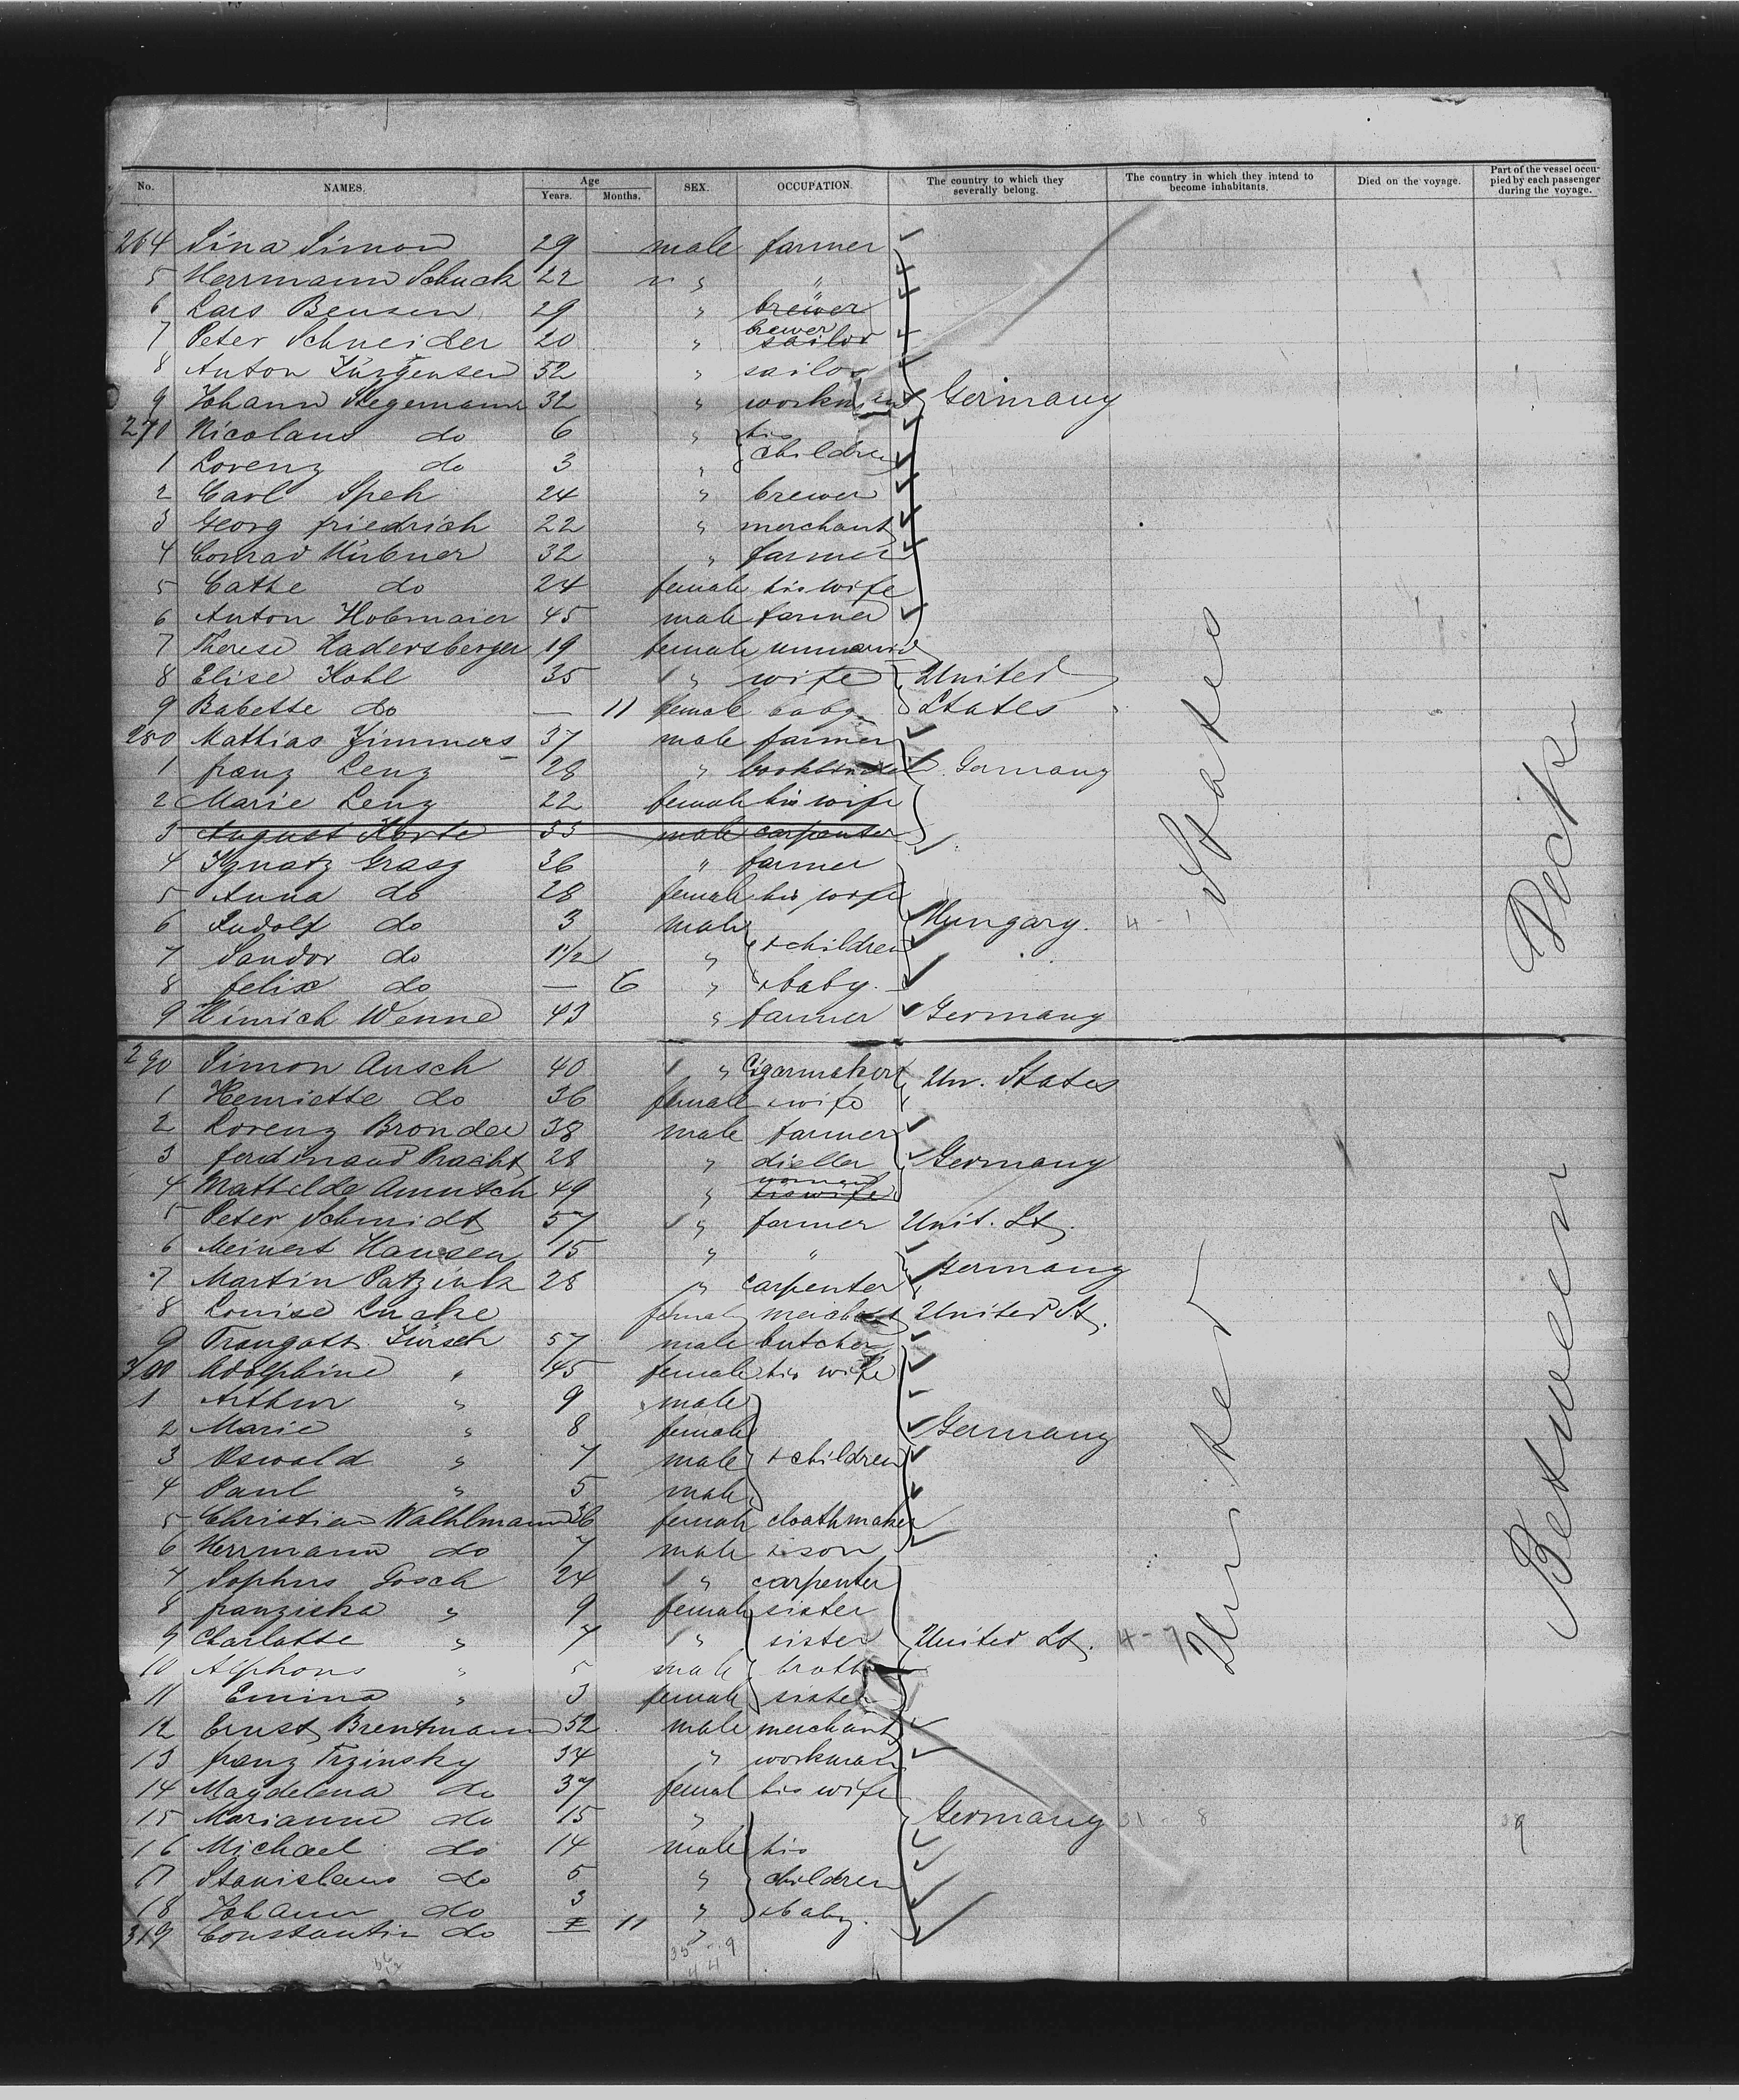 No. NAMES. Age Years. Months. SEX. OCCUPATION. The country to which they severally belong. The country in which they intend to become inhabitants. Died on the voyage. Part of the vessel occupied by each passenger during the voyage.
264 Sina Simon 29 male farmer
5 Herrmann Schuck 22 " "
6 Lars Bensen 29 " brewer
7 Peter Schneider 20 " brewer sailor
8 Anton Jürgensen 52 " sailor
9 Johann Stegemann 32 " Germany
270 Nicolaus do 6 " his
1 Lorenz do 3 " children
2 Carl Speh 24 " brewer
3 Georg friedrich 22 " merchant
4 Conrad Hübner 32 " farmer
5 Cathe do 24 female his wife
6 Anton Hobmaier 45 male farmer
7 Therese Hadersberger 19 female
8 Elise Kohl 35 " wife United
9 Babette do — 11 female baby States
280 Mathias Zimmers 37 male farmer
1 franz Lenz 28 " Germany
2 Marie Lenz 22 female his wife
3 August Korte 33 male carpenter
4 Ignatz Grasz 36 " farmer
5 Anna do 28 female his wife
6 Rudolf do 3 male Hungary.
7 Sandor do 1 1/2 " children
8 felix do — 6 " baby.
9 Hinrich Wenne 43 " farmer Germany
290 Simon Ausch 40 " Cigarmaker Un. States
1 Henriette do 36 female wife
2 Lorenz Bronder 38 male farmer
3 ferdinand Pracht 28 " Germany
4 Mathilde 49 " his wife
5 Peter Schmidt 57 " farmer Unit. St.
6 Meinert Hansen 15 " "
7 Martin Patzink 28 " carpenter Germany
8 Louise Lucke female United St.
9 Traugott 57 male butcher
300 Adolphine " 45 female his wife
1 Arthur " 9 male
2 Marie " 8 female Germany
3 Oswald " 7 male children
4 Paul " 5 male
5 Christian Walhlmann 36 female cloathmaker
6 Herrmann do 7 male son
7 Sophus Gosch 24 " carpenter
8 franziska " 9 female sister
9 Charlotte " 7 " sister United St. 4-7
10 Alphons " 5 male
11 Emina " 3 female sister
12 Ernst Brentmann 52 male merchant
13 franz Trzinsky 34 " workman
14 Magdelena do 37 femal his wife
15 Marianne do 15 " Germany 31 - 8
16 Michael do 14 male his
17 Stanislaus do 5 " children
18 Johann do 3 " baby.
319 Constantin do 11 "
35 - 9
44
United States
Between Deck